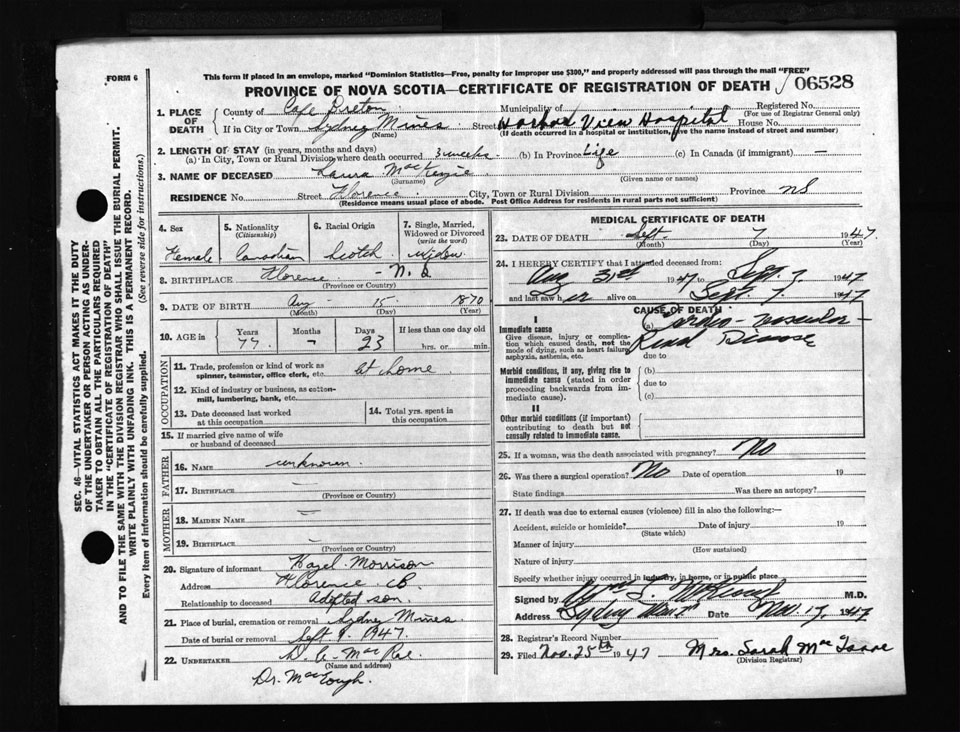 FORM 6
This form if placed in an envelope, marked "Dominion Statistics—Free, penalty for improper use $300," and properly addressed will pass through the mail "FREE"
PROVINCE OF NOVA SCOTIA—CERTIFICATE OF REGISTRATION OF DEATH 06528
1. PLACE OF DEATH County of Cape Breton Municipality of Registered No.
(For use of Registrar General only)
If in City or Town Sydney Mines Street Harbor View Hospital House No.
(Name) (If death occurred in a hospital or institution, give the name instead of street and number)
2. LENGTH OF STAY (in years, months and days)
(a) In City, Town or Rural Division where death occurred 3 weeks (b) In Province Life (c) In Canada (if immigrant) —
3. NAME OF DECEASED Laura MacKenzie
(Surname) (Given name or names)
RESIDENCE No. Street Florence City, Town or Rural Division Province NS
(Residence means usual place of abode. Post Office Address for residents in rural parts not sufficient)
4. Sex
Female
5. Nationality
(Citizenship)
Canadian
6. Racial Origin
Scotch
7. Single, Married, Widowed or Divorced
(write the word)
Widow
8. BIRTHPLACE Florence - N.S
(Province or Country)
9. DATE OF BIRTH Aug - 15 - 1870
(Month) (Day) (Year)
10. AGE in Years Months Days If less than one day old
77 - 23 hrs. or min.
OCCUPATION
11. Trade, profession or kind of work as spinner, teamster, office clerk, etc. At home
12. Kind of industry or business, as cotton-mill, lumbering, bank, etc.
13. Date deceased last worked at this occupation
14. Total yrs. spent in this occupation
15. If married give name of wife or husband of deceased
FATHER
16. NAME unknown
17. BIRTHPLACE —
(Province or Country)
MOTHER
18. MAIDEN NAME —
19. BIRTHPLACE —
(Province or Country)
20. Signature of informant Hazel Morrison
Address Florence CB
Relationship to deceased Adopted son
21. Place of burial, cremation or removal Sydney Mines
Date of burial or removal Sept 9. 1947.
22. UNDERTAKER D. A. MacRae
(Name and address)
MEDICAL CERTIFICATE OF DEATH
23. DATE OF DEATH Sept 7 1947
(Month) (Day) (Year)
24. I HEREBY CERTIFY that I attended deceased from:
Aug 31st 1947 to Sept. 7 1947
and last saw her alive on Sept. 7 1947
CAUSE OF DEATH
I
Immediate cause
Give disease, injury or complication which caused death, not the mode of dying, such as heart failure, asphyxia, asthenia, etc.
(a) Cardio-vascular-
Renal Disease
due to
Morbid conditions, if any, giving rise to immediate cause (stated in order proceeding backwards from immediate cause).
(b)
due to
(c)
II
Other morbid conditions (if important) contributing to death but not causally related to immediate cause.
25. If a woman, was the death associated with pregnancy? No
26. Was there a surgical operation? No Date of operation 19
State findings Was there an autopsy?
27. If death was due to external causes (violence) fill in also the following:—
Accident, suicide or homicide? Date of injury 19
(State which)
Manner of injury
(How sustained)
Nature of injury
Specify whether injury occurred in industry, in home, or in public place
Signed by M.D.
Address Sydney Mines Date Nov. 17, 1947
28. Registrar's Record Number
29. Filed Nov. 25th 1947 Mrs. Sarah Mac
(Division Registrar)
SEC. 46—VITAL STATISTICS ACT MAKES IT THE DUTY
OF THE UNDERTAKER OR PERSON ACTING AS UNDER-
TAKER TO OBTAIN ALL THE PARTICULARS REQUIRED
IN THE "CERTIFICATE OF REGISTRATION OF DEATH"
AND TO FILE THE SAME WITH THE DIVISION REGISTRAR WHO SHALL ISSUE THE BURIAL PERMIT.
WRITE PLAINLY WITH UNFADING INK. THIS IS A PERMANENT RECORD.
Every item of information should be carefully supplied. (See reverse side for instructions.)